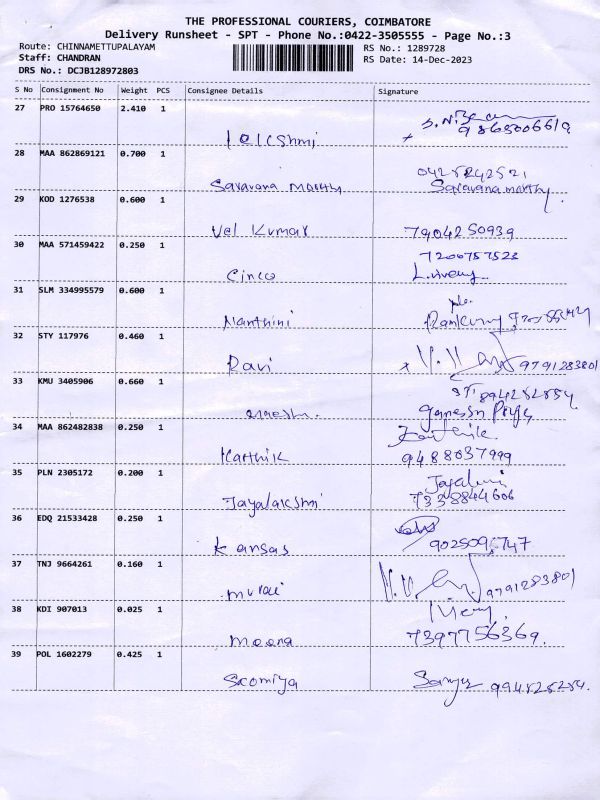 THE PROFESSIONAL COURIERS, COIMBATORE
Delivery Runsheet - SPT - Phone No.:0422-3505555 - Page No.:3
Route: CHINNAMETTUPALAYAM
RS No.: 1289728
Staff: CHANDRAN
RS Date: 14-Dec-2023
DRS No.: DCJB128972803
S No Consignment No Weight PCS Consignee Details Signature
27 PRO 15764650 2.410 1
9865006619
28 MAA 862869121 0.700 1
Saravana Marthy Saravana marthy
29 KOD 1276538 0.600 1
Vel Kumar 7904250939
30 MAA 571459422 0.250 1
7200757523
Cinco
31 SLM 334995579 0.600 1
Nanthini
32 STY 117976 0.460 1
Ravi 9791283801
33 KMU 3405906 0.660 1
34 MAA 862482838 0.250 1
Karthik 9488037999
35 PLN 2305172 0.200 1
Jayalakshmi 7338844606
36 EDQ 21533428 0.250 1
Kansas
37 TNJ 9664261 0.160 1
murali 9791283801
38 KDI 907013 0.025 1
meena 7397756369.
39 POL 1602279 0.425 1
Sowmiya